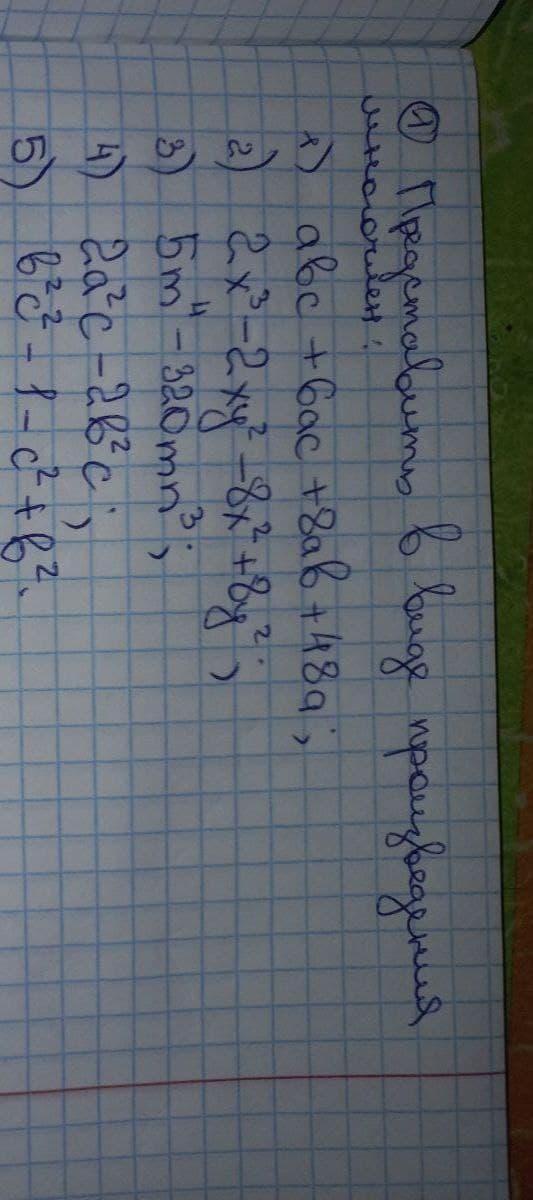 ① Представить в виде произведения
многочлен:
1) abc + 6ac + 8ab + 48a;
2) 2x³ - 2xy² - 8x² + 8y²;
3) 5m⁴ - 320mn³;
4) 2a²c - 2b²c;
5) b²c² - 1 - c² + b².